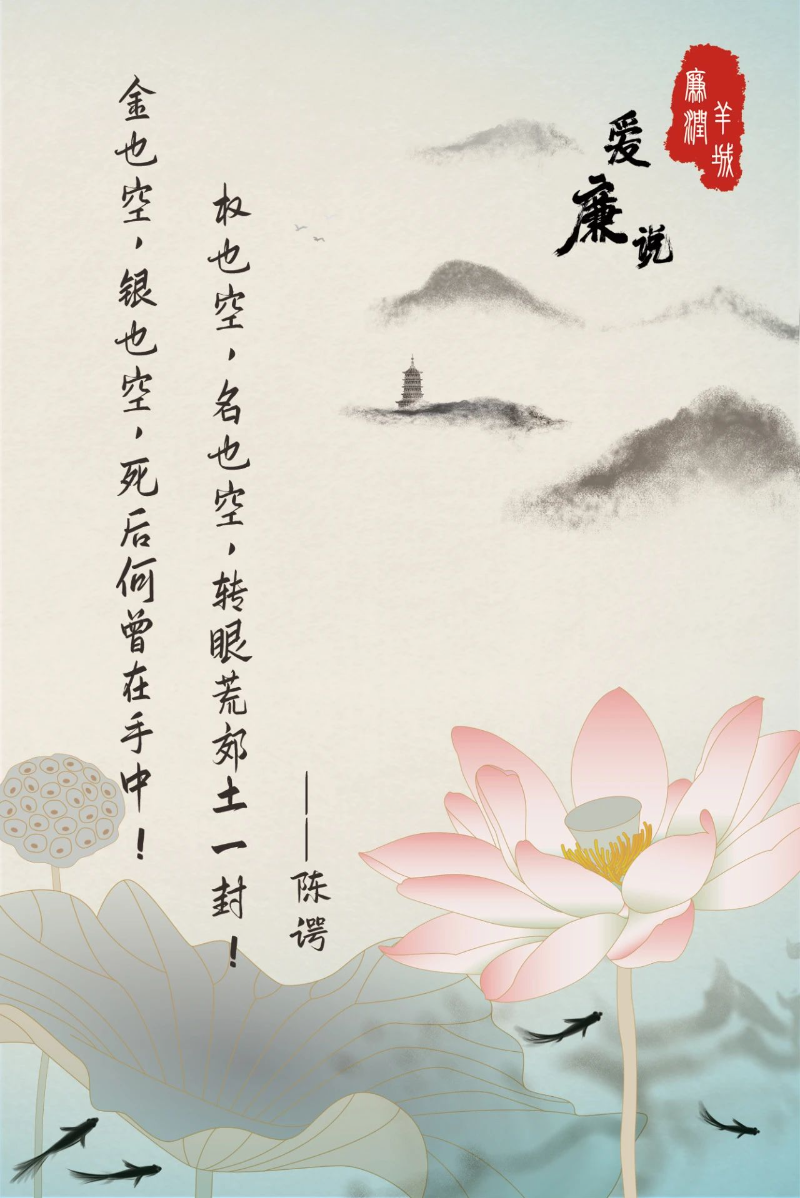 廉潤
羊城
爱廉说
金也空，银也空，死后何曾在手中！
权也空，名也空，转眼荒郊土一封！
——陈谔